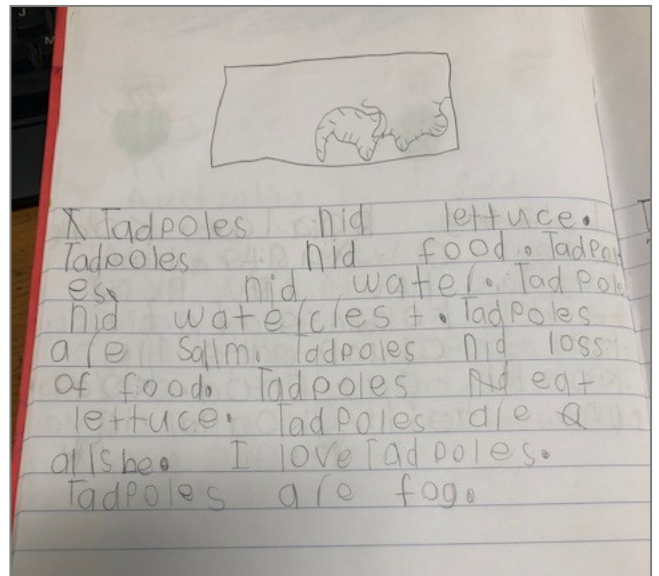 Tadpoles nid lettuce.
Tadpoles nid food. Tadpol
es nid water. Tadpole
nid watercles t. Tadpoles
are sallm. Tadpoles nid loss
of food. Tadpoles eat
lettuce. Tadpoles are a
allshe. I love Tadpoles.
Tadpoles are fog.